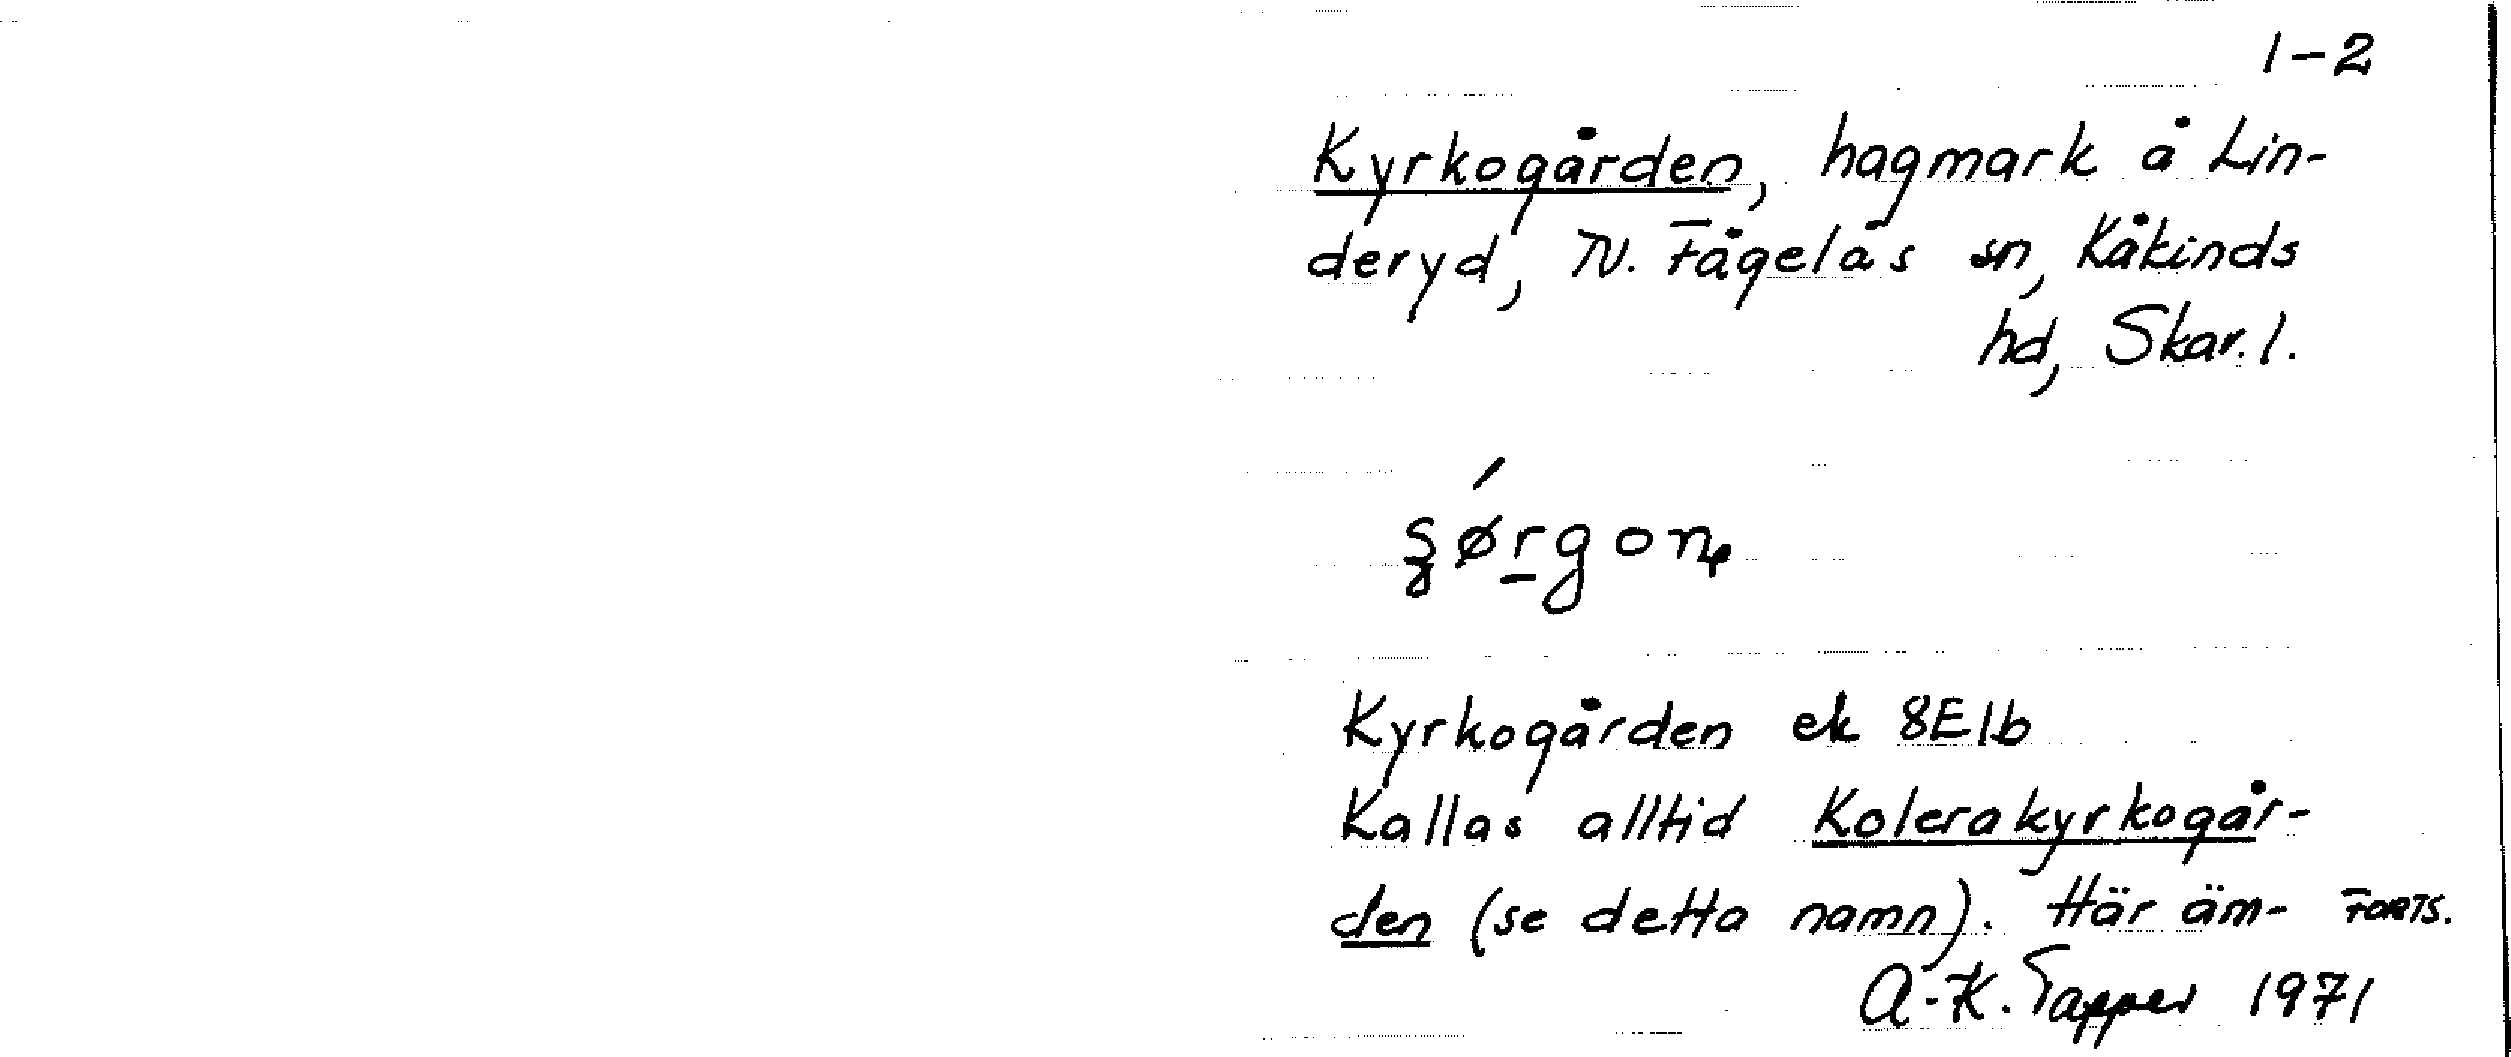 1-2
Kyrkogården, hagmark å Lin-
deryd, N. Fågelås sn, Kåkinds
hd, Skar. l.
Kyrkogården ek 8E1b
Kallas alltid Kolerakyrkogår-
den (se detta namn). Här äm- FORTS.
A-K. Tapper 1971